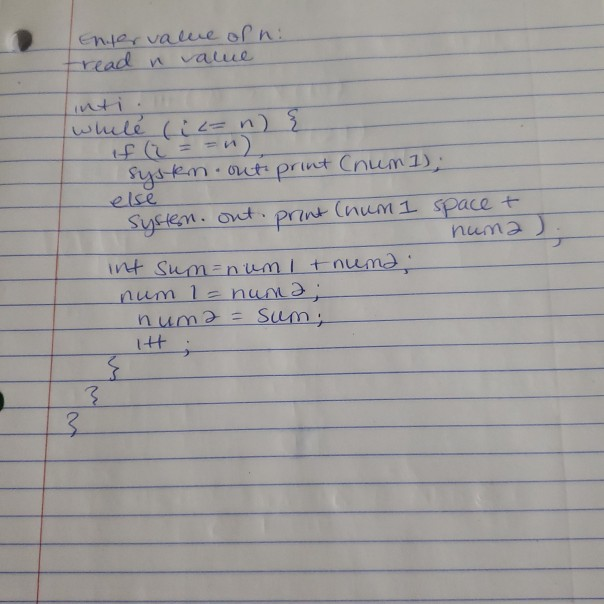 Enter value of n:
read n value
int i.
while (i <= n) {
if (i = = n)
system.out.print (num1);
else
system.out.print (num1 space +
num2);
int sum=num1 + num2;
num1 = num2;
num2 = sum;
i++;
}
}
}